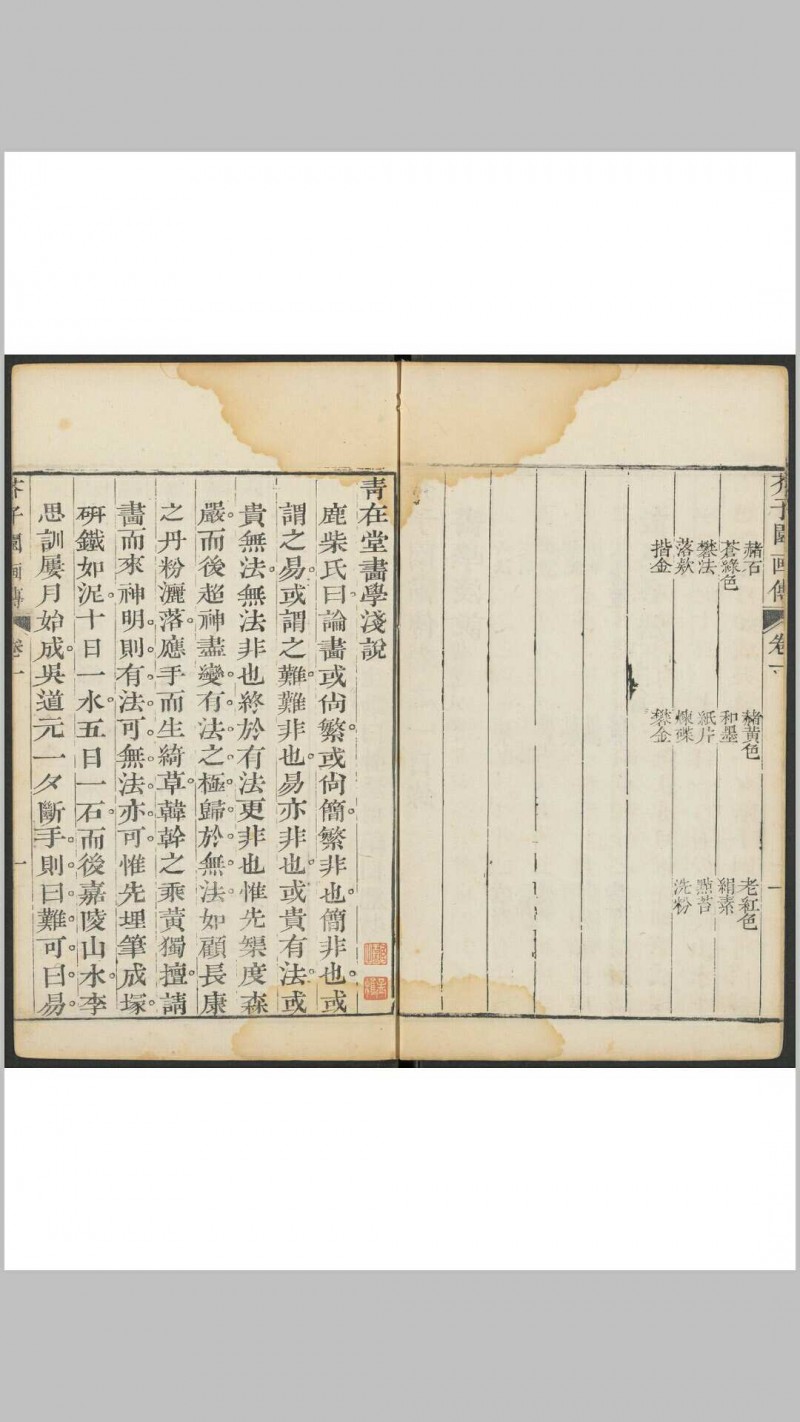 芥子園画傳 卷一 一
赭石 赭黃色 老紅色
蒼綠色 和墨 絹素
礬法 紙片 點苔
落欵 煉碟 洗粉
揩金 礬金
青在堂畫學淺說
鹿柴氏曰論畫或尙繁或尙簡繁非也。簡非也。或
謂之易。或謂之難。難非也。易亦非也。或貴有法。或
貴無法。無法非也。終於有法更非也。惟先榘度森
嚴。而後超神盡變。有法之極。歸於無法。如顧長康
之丹粉灑落。應手而生綺草。韓幹之乘黃獨擅。請
畫而來神明。則有法可。無法亦可。惟先埋筆成塚。
硏鐵如泥。十日一水。五日一石。而後嘉陵山水。李
思訓屢月始成。吳道元一夕斷手。則曰難可。曰易
芥子園画傳 卷一 一